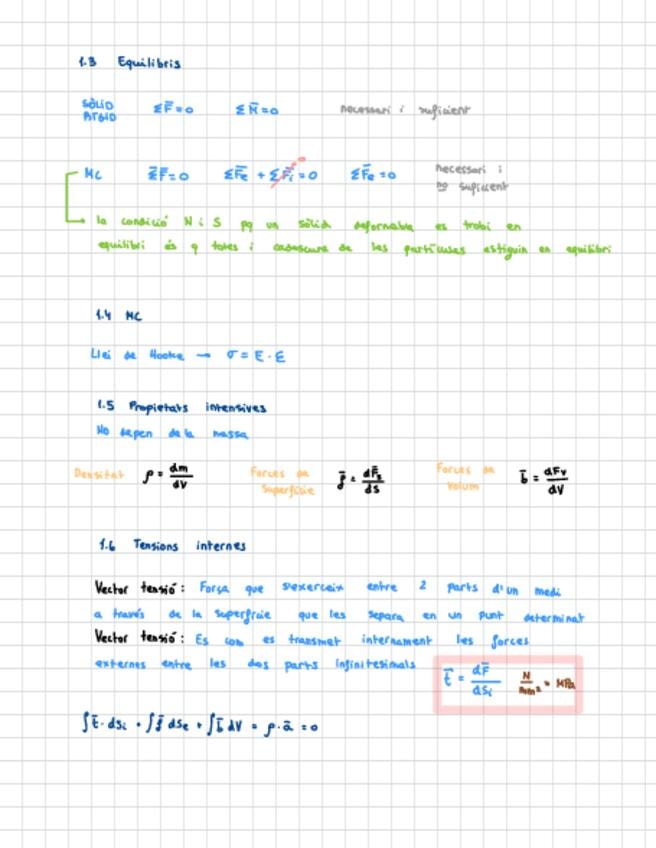 1.3 Equilibris
SÒLID RÍGID ΣF̄=0 ΣM̄=0 necessari i suficient
MC ΣF̄=0 ΣF̄e + ΣF̄i=0 ΣF̄e=0 necessari i
no suficient
la condició N i S pq un sòlid deformable es trobi en
equilibri és q totes i cadascuna de les partícules estiguin en equilibri
1.4 MC
Llei de Hooke → σ = E · ε
1.5 Propietats intensives
No depen de la massa
Densitat ρ = dm/dV Forces de Superfície f̄ = dF̄s/dS Forces de Volum b̄ = dFv/dV
1.6 Tensions internes
Vector tensió: Força que s'exerceix entre 2 parts d'un medi
a través de la superfície que les separa en un punt determinat
Vector tensió: Es com es transmet internament les forces
externes entre les dos parts infinitesimals
t̄ = dF̄/dSi N/mm² = MPa
∫t̄ · dSi + ∫f̄ dSe + ∫b̄ dV = ρ · ā = 0